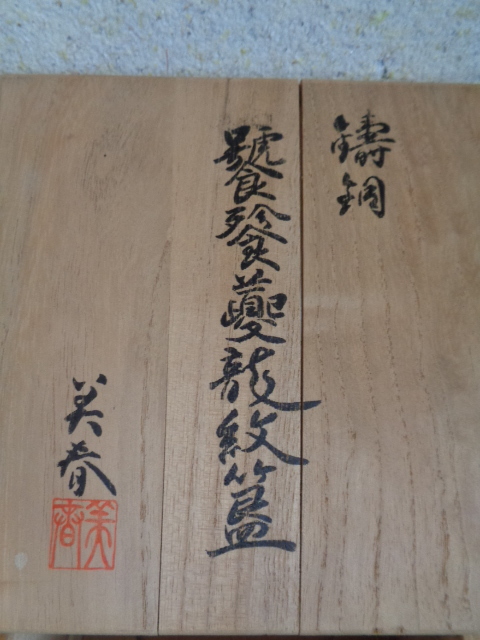 鋳銅
饕餮夔龍紋簋
美春
美春